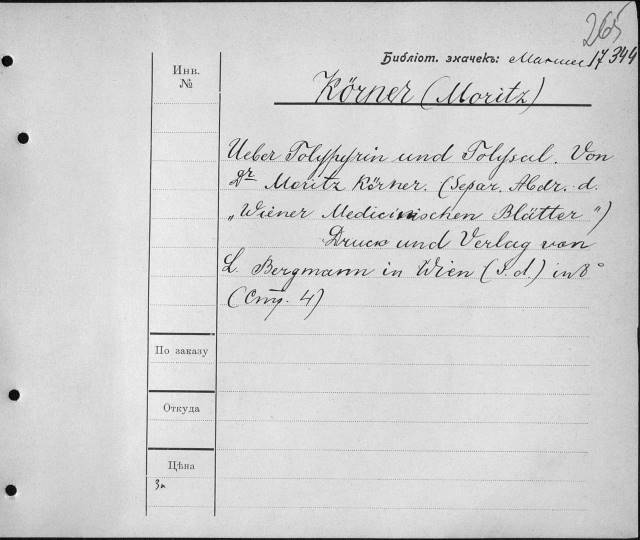 265
Библіот. значекъ: 17344
Инв.
№
Körner (Moritz)
Ueber Tolypyrin und Tolysal. Von
Dr Moritz Körner. (Separ. Abdr. d.
„Wiener Medicinischen Blätter")
Druck und Verlag von
L. Bergmann in Wien (S. d.) in 8°
(Стр. 4)
По заказу
Откуда
Цѣна
3к